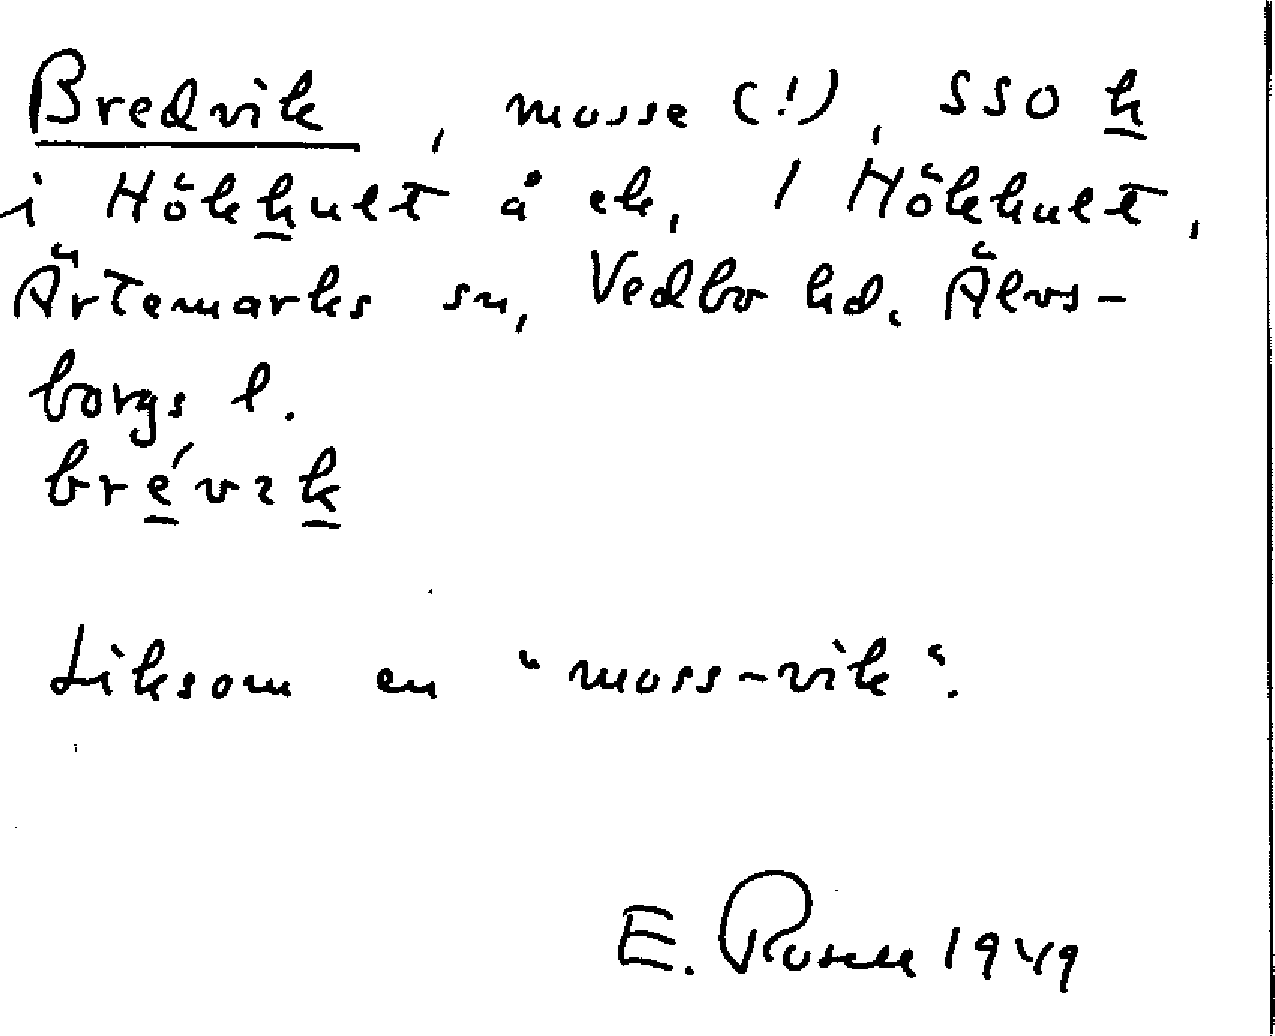 Bredvik, mosse (!), SSO k
i Hökhult å ek, 1 Hökhult,
Ärtemarks sn, Vedbo hd. Älvs-
borgs l.
brévɩk
Liksom en "moss-vik".
E. Rosell 1949